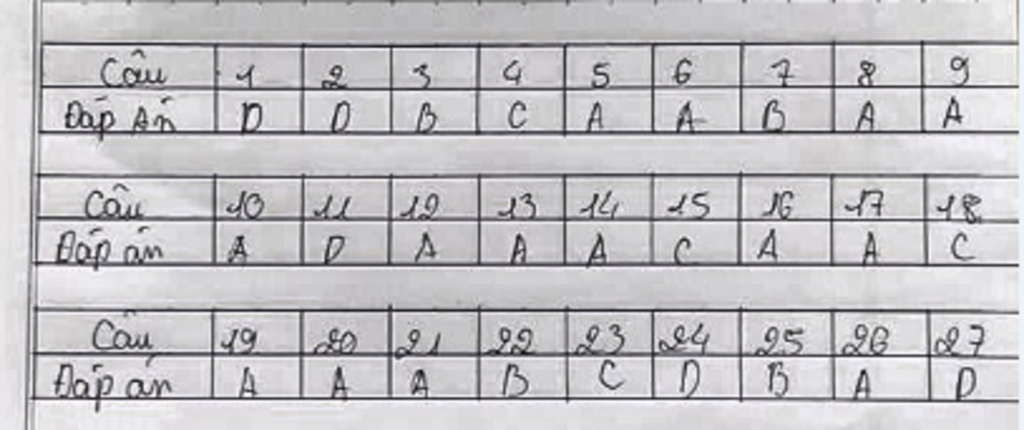 Câu 1 2 3 4 5 6 7 8 9
Đáp Án D D B C A A B A A
Câu 10 11 12 13 14 15 16 17 18
Đáp án A D A A A C A A C
Câu 19 20 21 22 23 24 25 26 27
Đáp án A A A B C D B A D